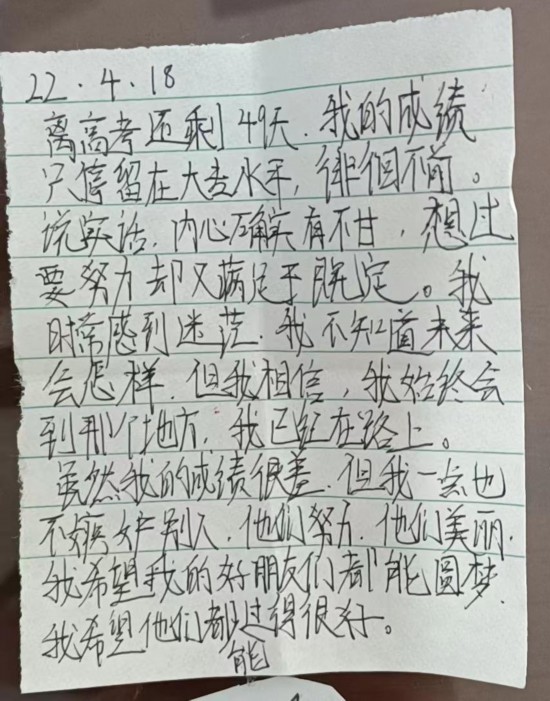 22.4.18
离高考还剩49天.我的成绩
只停留在大专水平,徘徊不前。
说实话,内心确实有不甘,想过
要努力却又满足于既定。我
时常感到迷茫.我不知道未来
会怎样.但我相信,我始终会
到那个地方,我已经在路上。
虽然我的成绩很差.但我一点也
不嫉妒别人.他们努力.他们美丽.
我希望我的好朋友们都能圆梦.
我希望他们都能过得很好。